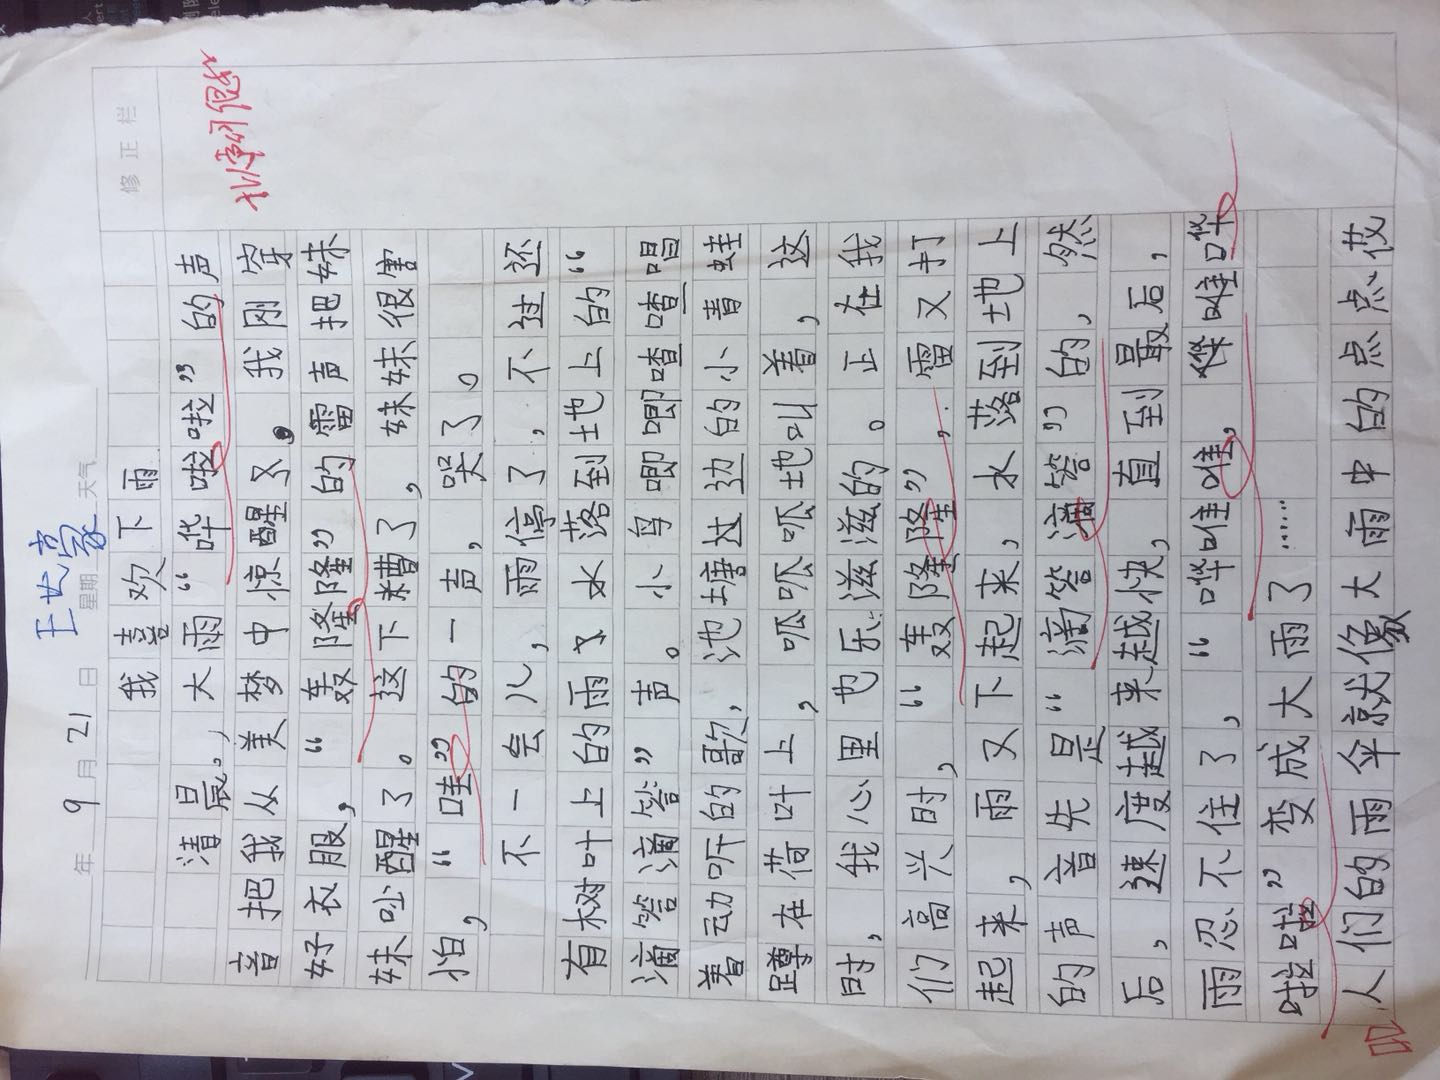 9月21日 星期 天气
修正栏
我喜欢下雨
清晨。,大雨“哗啦啦”的声
音把我从美梦中惊醒了。我刚穿
好衣服,“轰隆隆”的雷声把妹
妹吵醒了。这下糟了,妹妹很害
怕,“哇”的一声,哭了。
不一会儿,雨停了,不过还
有树叶上的雨水落到地上的“
滴答滴答”声。小鸟唧唧喳喳唱
着动听的歌,池塘边的小青蛙
蹲在荷叶上,呱呱呱地叫着,这
时,我心里也乐滋滋的。正在我
们高兴时,“轰隆隆”,雷又打
起来,雨又下起来,水落到地上
的声音先是“滴答滴答”的,然
后,速度越来越快,直到最后,
雨忍不住了,“哗哗,哗哗
啦啦”变成大雨了……
人们的雨伞就像大雨中的点点花